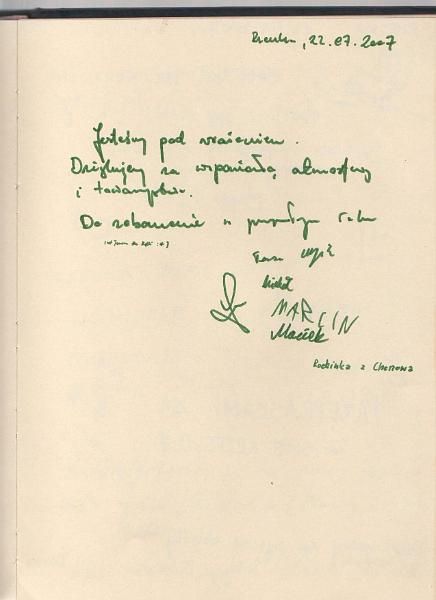 22.07.2007
Jesteśmy pod wrażeniem.
Dziękujemy za wspaniałą atmosferę
i towarzystwo.
Do zobaczenia w przyszłym roku
Michał
MARCIN
Maciek
Rodzinka z Chorzowa